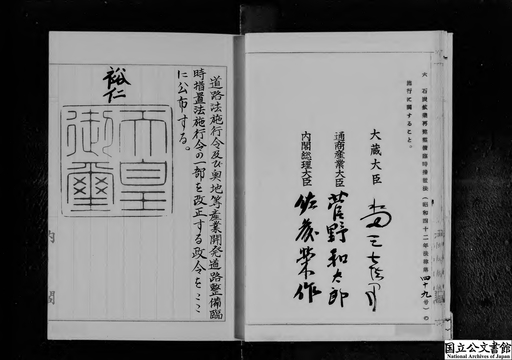 六 石炭鉱業再建整備臨時措置法(昭和四十二年法律第四十九号)の
施行に関すること。
大蔵大臣
通商産業大臣 菅野和太郎
内閣総理大臣 佐藤榮作
道路法施行令及び奥地等産業開発道路整備臨
時措置法施行令の一部を改正する政令をここ
に公布する。
裕仁
天皇
御璽
内閣
国立公文書館
National Archives of Japan